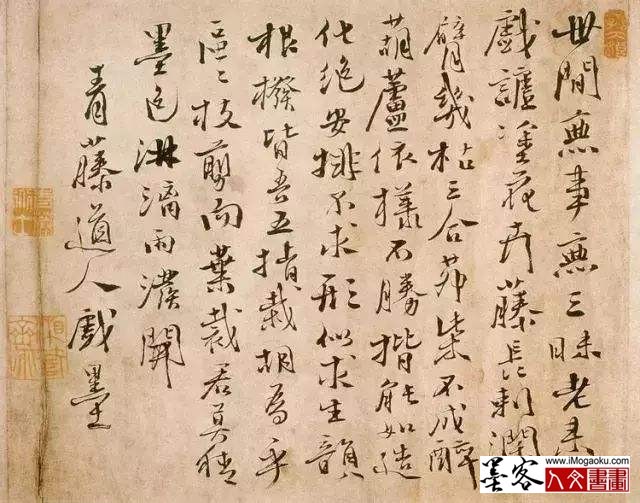 世間無事無三昧老來
戲謔塗花卉藤長刺濶
臂幾枯三合茆柴不成醉
葫蘆依樣不勝揩能如造
化絕安排不求形似求生韻
根撥皆吾五指栽胡為乎
區〻枝剪而葉裁君莫猜
墨色淋漓雨潑開
青藤道人戲墨
墨客
www.iMogaoku.com
人文書畫